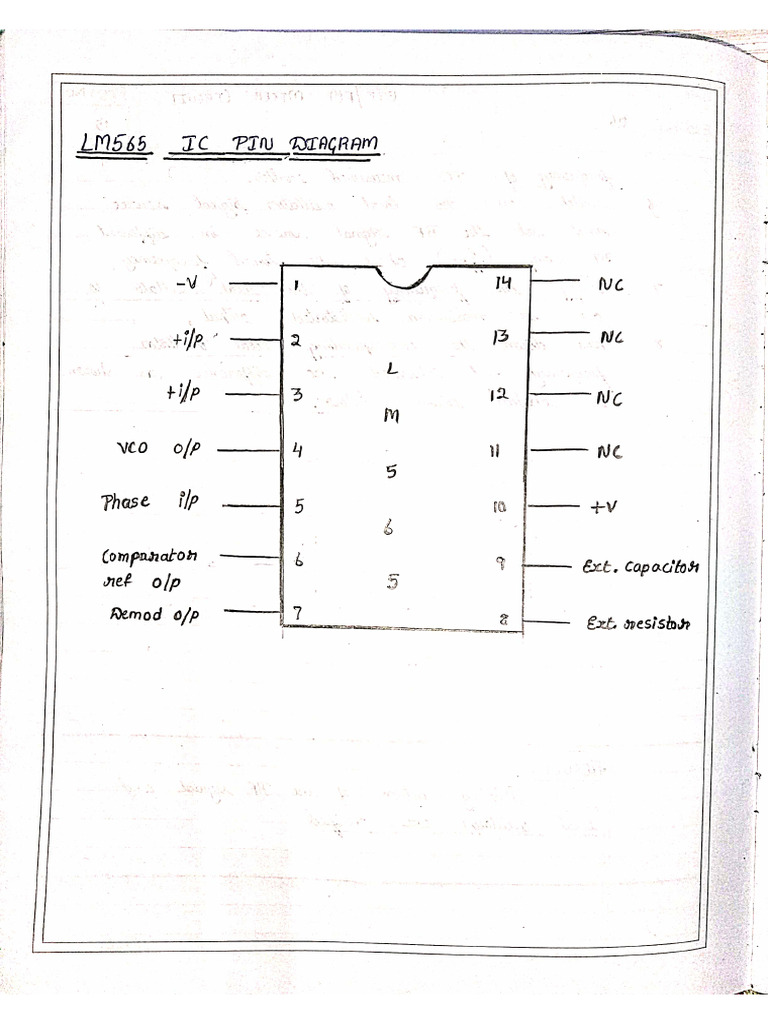 LM565 IC PIN DIAGRAM
-V 1 14 NC
+i/p 2 13 NC
L
+i/p 3 12 NC
M
VCO o/p 4 11 NC
5
Phase i/p 5 10 +V
6
Comparator 6 9 Ext. Capacitor
ref o/p 5
Demod o/p 7 8 Ext. resistor